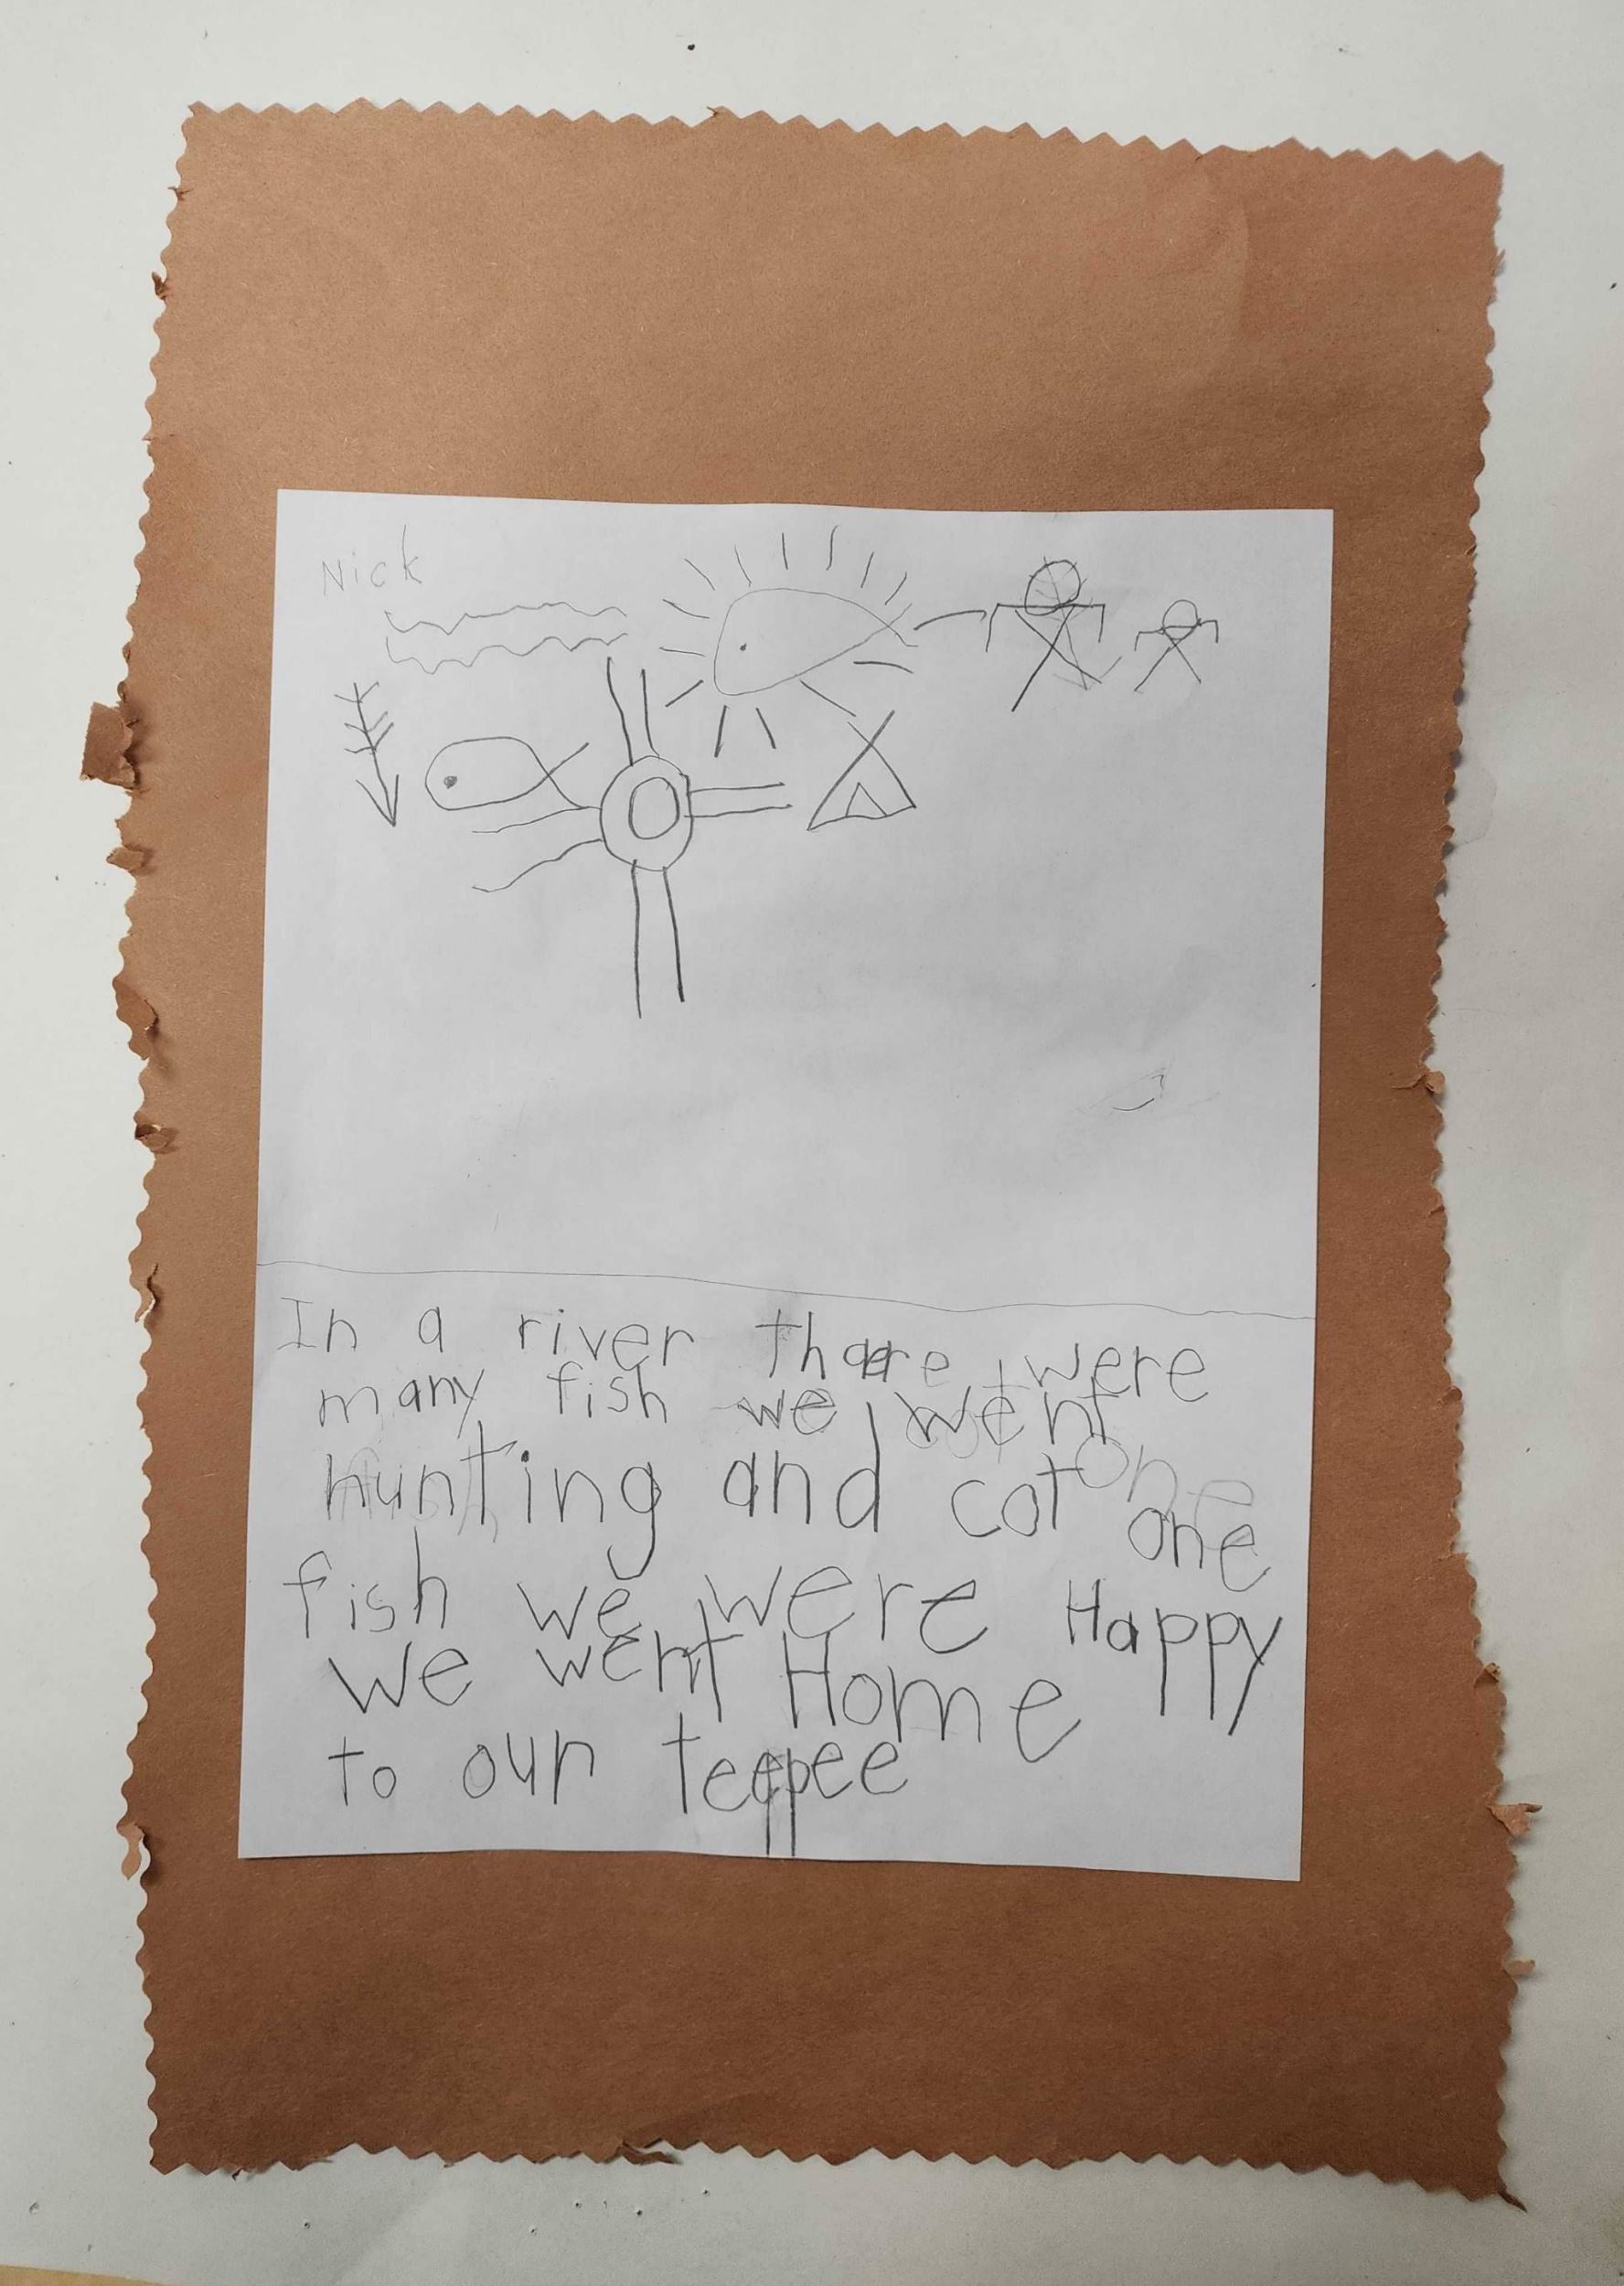 Nick
In a river thare were
many fish we went
hunting and cot one
fish we were Happy
we went Home
to our teepee